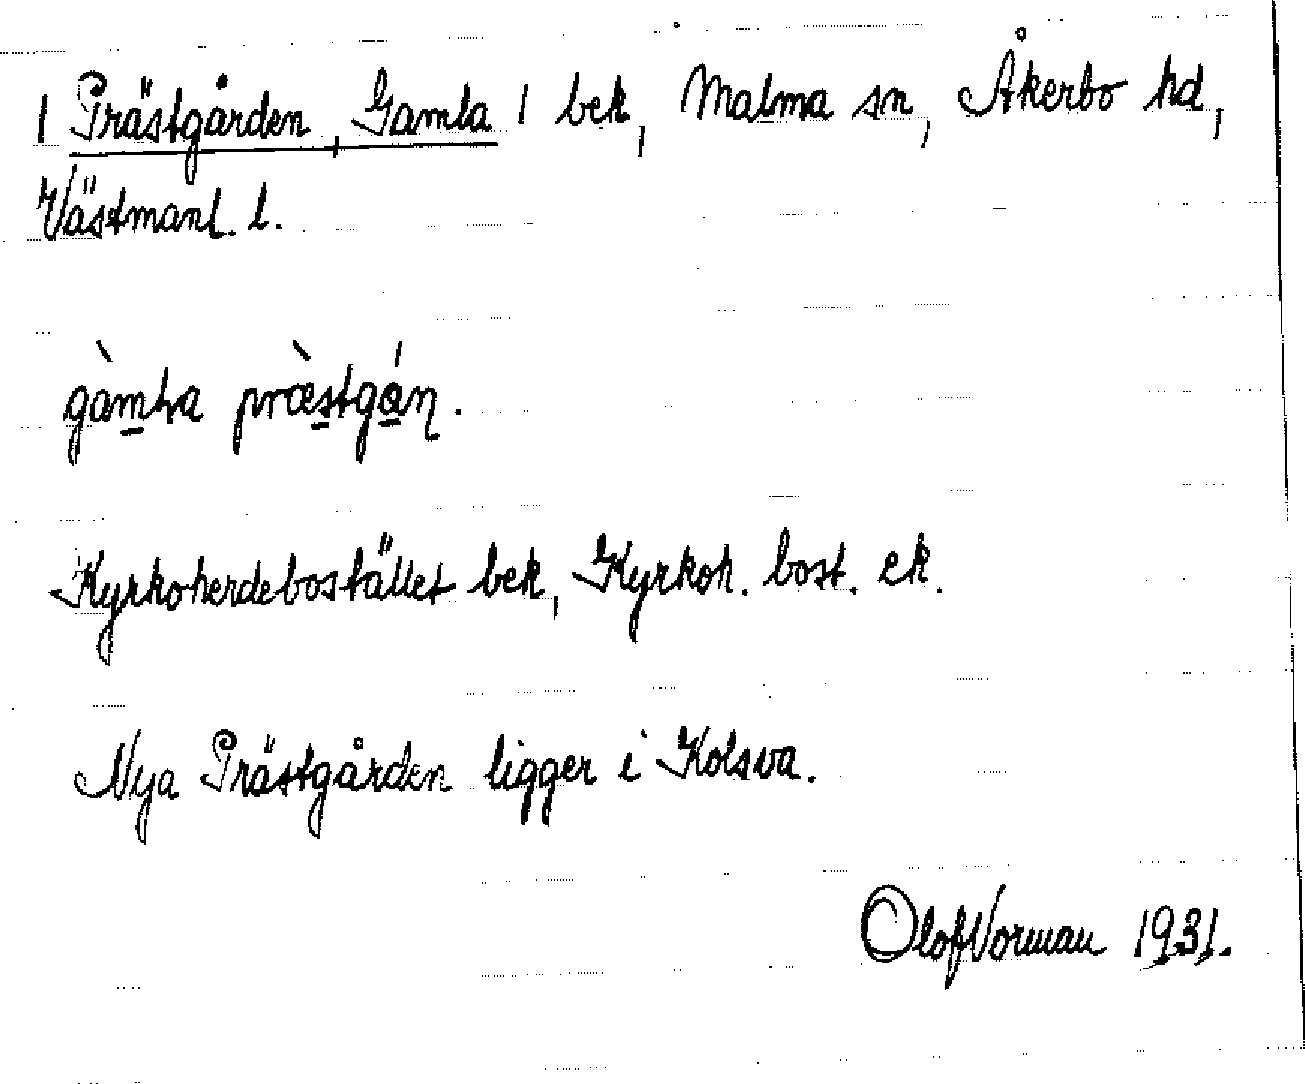 | Prästgården, Gamla | bek, Malma sn, Åkerbo hd,
Västmanl. l.
gàmla præ̀stgán.
Kyrkoherdebostället bek, Kyrkoh. bost. ek.
Nya Prästgården ligger i Kolsva.
Olof Norman 1931.